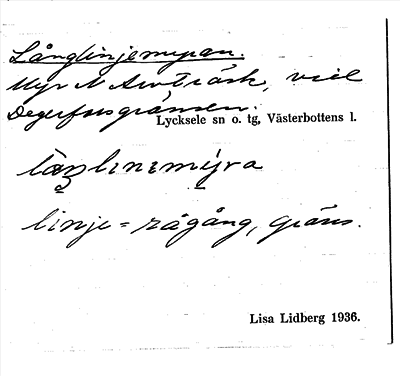 Långlinjemyran.
Myr N Avaträsk, vid
Degerforsgränsen.
Lycksele sn o. tg, Västerbottens l.
linje = rågång, gräns.
Lisa Lidberg 1936.